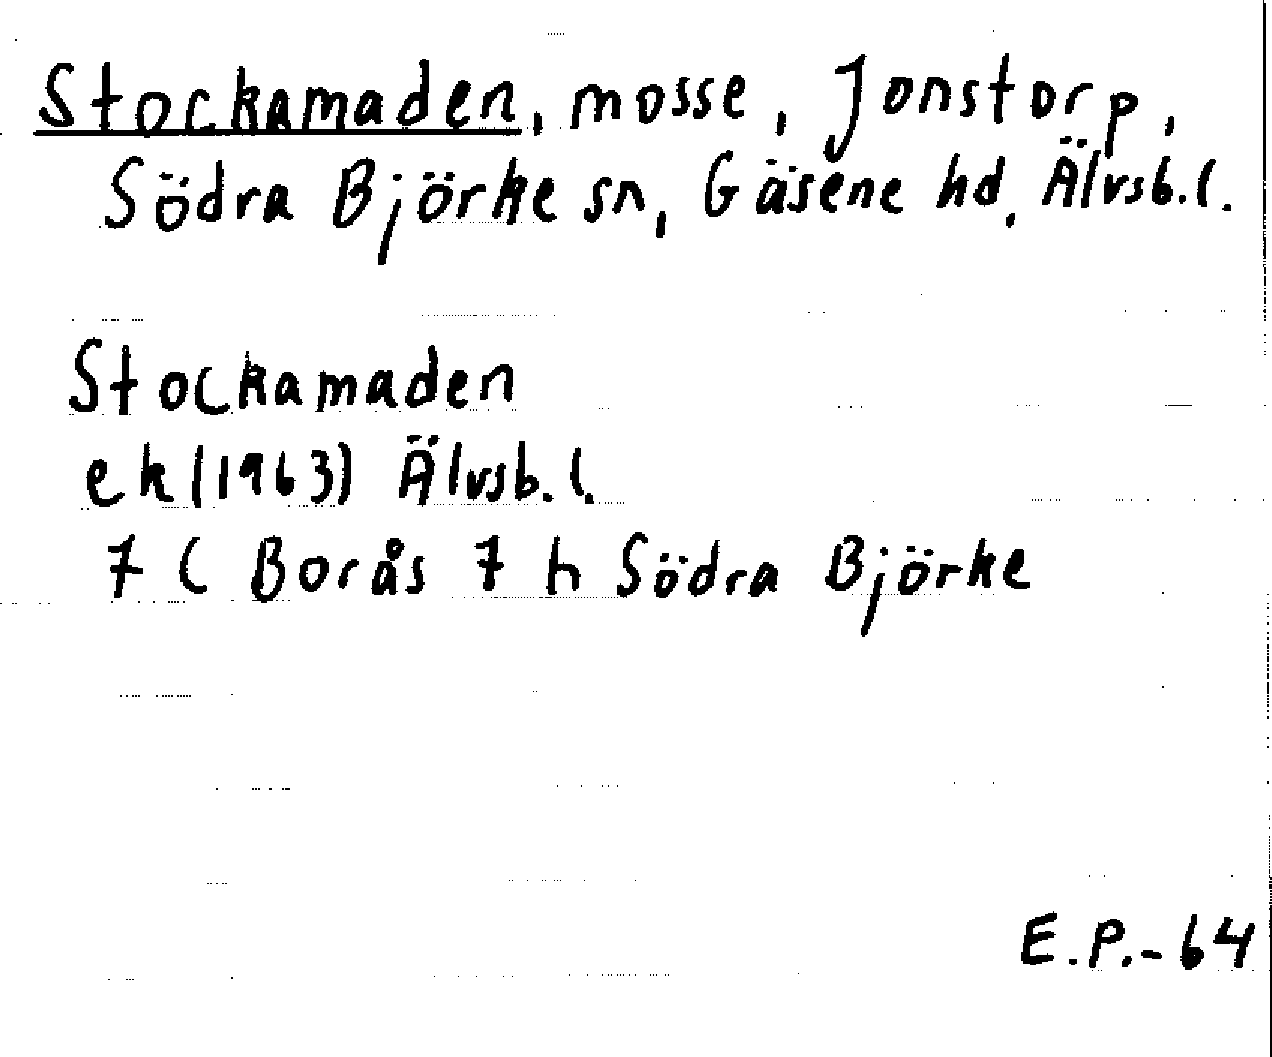 Stockamaden, mosse, Jonstorp,
Södra Björke sn, Gäsene hd, Älvsb. l.
Stockamaden
ek (1963) Älvsb. l.
7 C Borås 7 h Södra Björke
E.P.-64